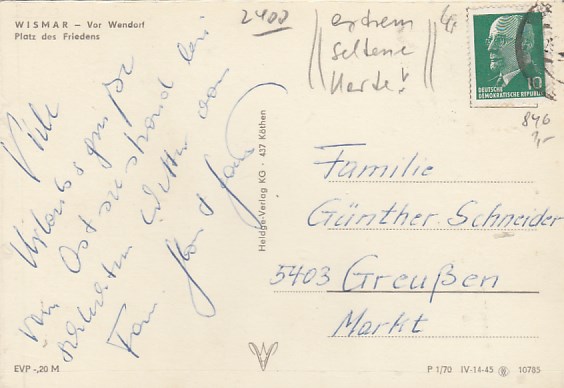 WISMAR – Vor Wendorf
Platz des Friedens
2400
extrem
seltene
Karte!
4,-
DEUTSCHE
DEMOKRATISCHE REPUBLIK
10
846
1,-
Viele
Urlaubsgrüße
vom Ostseestrand bei
Wetter von
Fam.
Heldge-Verlag KG · 437 Köthen
Familie
Günther Schneider
5403 Greußen
Markt
EVP -,20 M
P 1/70 IV-14-45 10785